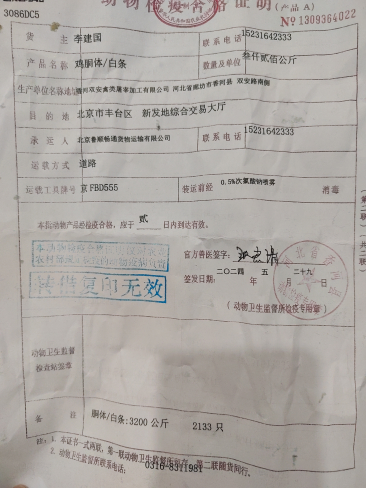 动物检疫合格证明
(产品 A)
3086DC5
№ 1309364022
货 主 李建国 联系电话 15231642333
产品名称 鸡胴体/白条 数量及单位 叁仟贰佰公斤
生产单位名称地址 香河双安禽类屠宰加工有限公司 河北省廊坊市香河县 双安路南侧
目 的 地 北京市丰台区 新发地综合交易大厅
承 运 人 北京鲁顺畅通货物运输有限公司 联系电话 15231642333
运载方式 道路
运载工具牌号 京 FBD555 装运前经 0.5%次氯酸钠喷雾 消毒
本批动物产品经检疫合格，应于 贰 日内到达有效。
官方兽医签字：
签发日期： 二〇二四 年 五 月 二十九 日
(动物卫生监督所检疫专用章)
转借复印无效
动物卫生监督
检查站签章
备 注 胴体/白条:3200 公斤 2133 只
注：1. 本证书一式两联，第一联动物卫生监督所留存，第二联随货同行。
2. 动物卫生监督所联系电话： 0316-8311981